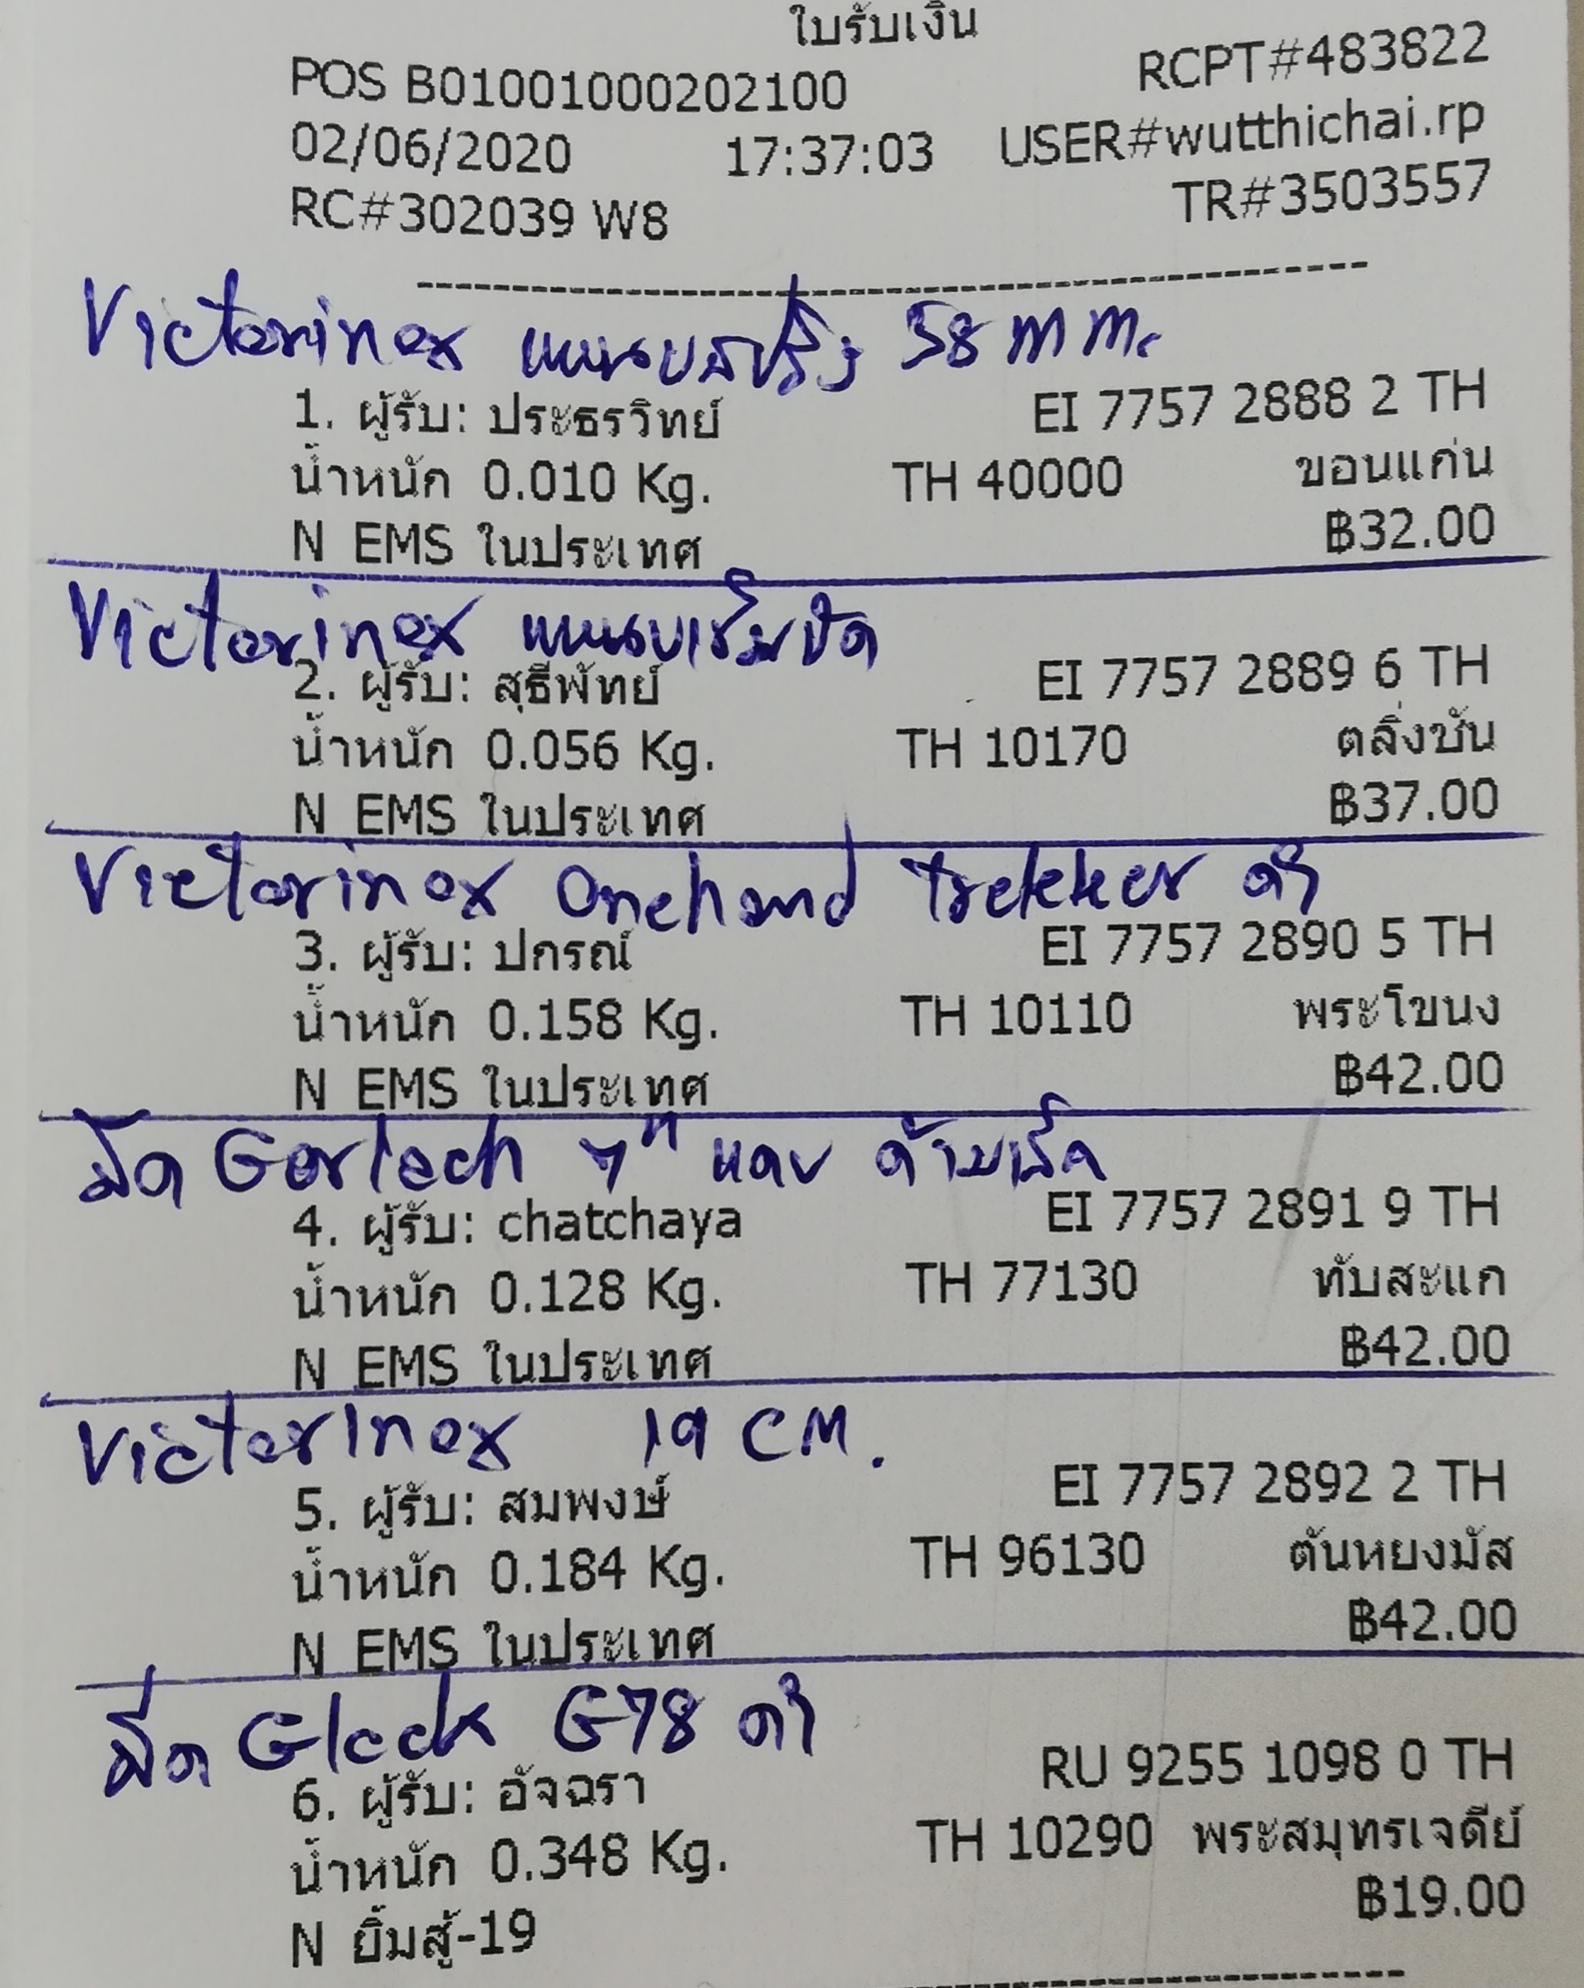 ใบรับเงิน
POS B01001000202100 RCPT#483822
02/06/2020 17:37:03 USER#wutthichai.rp
RC#302039 W8 TR#3503557
Victorinox แหนบสปริง 58 mm.
1. ผู้รับ: ประธรวิทย์ EI 7757 2888 2 TH
น้ำหนัก 0.010 Kg. TH 40000 ขอนแก่น
N EMS ในประเทศ ฿32.00
Victorinox แหนบเข็มขัด
2. ผู้รับ: สุธีพัทย์ EI 7757 2889 6 TH
น้ำหนัก 0.056 Kg. TH 10170 ตลิ่งชัน
N EMS ในประเทศ ฿37.00
Victorinox Onehand trekker ดำ
3. ผู้รับ: ปกรณ์ EI 7757 2890 5 TH
น้ำหนัก 0.158 Kg. TH 10110 พระโขนง
N EMS ในประเทศ ฿42.00
มีด Gerlach 7" แคบ ด้ามเล็ก
4. ผู้รับ: chatchaya EI 7757 2891 9 TH
น้ำหนัก 0.128 Kg. TH 77130 ทับสะแก
N EMS ในประเทศ ฿42.00
Victorinox 19 CM.
5. ผู้รับ: สมพงษ์ EI 7757 2892 2 TH
น้ำหนัก 0.184 Kg. TH 96130 ตันหยงมัส
N EMS ในประเทศ ฿42.00
มีด Glock G78 ดำ
6. ผู้รับ: อัจฉรา RU 9255 1098 0 TH
น้ำหนัก 0.348 Kg. TH 10290 พระสมุทรเจดีย์
N ยิ้มสู้-19 ฿19.00